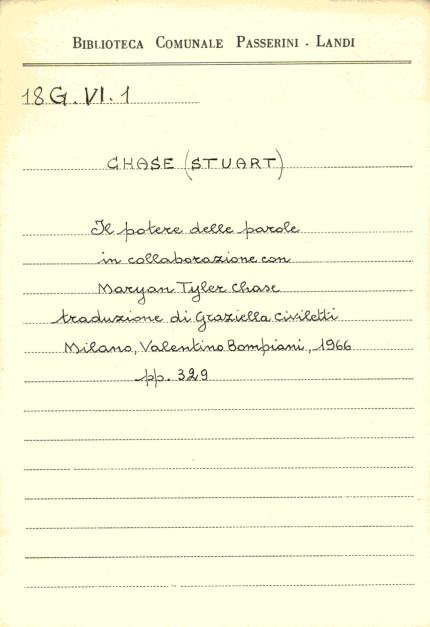 BIBLIOTECA COMUNALE PASSERINI - LANDI
18G.VI.1
CHASE (STUART)
Il potere delle parole
in collaborazione con
Maryan Tyler Chase
traduzione di Graziella Civiletti
Milano, Valentino Bompiani, 1966
pp. 329